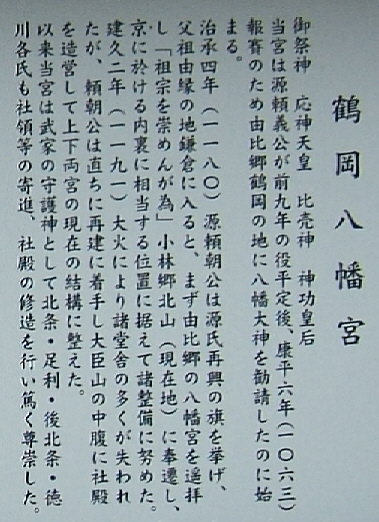 鶴岡八幡宮
御祭神　応神天皇　比売神　神功皇后
当宮は源頼義公が前九年の役平定後、康平六年(一〇六三)
報賽のため由比郷鶴岡の地に八幡大神を勧請したのに始
まる。
治承四年（一一八〇）源頼朝公は源氏再興の旗を挙げ、
父祖由縁の地鎌倉に入ると、まず由比郷の八幡宮を遥拝
し「祖宗を崇めんが為」小林郷北山（現在地）に奉遷し、
京に於ける内裏に相当する位置に据えて諸整備に努めた。
建久二年（一一九一）大火により諸堂舎の多くが失われ
たが、頼朝公は直ちに再建に着手し大臣山の中腹に社殿
を造営して上下両宮の現在の結構に整えた。
以来当宮は武家の守護神として北条・足利・後北条・徳
川各氏も社領等の寄進、社殿の修造を行い篤く尊崇した。